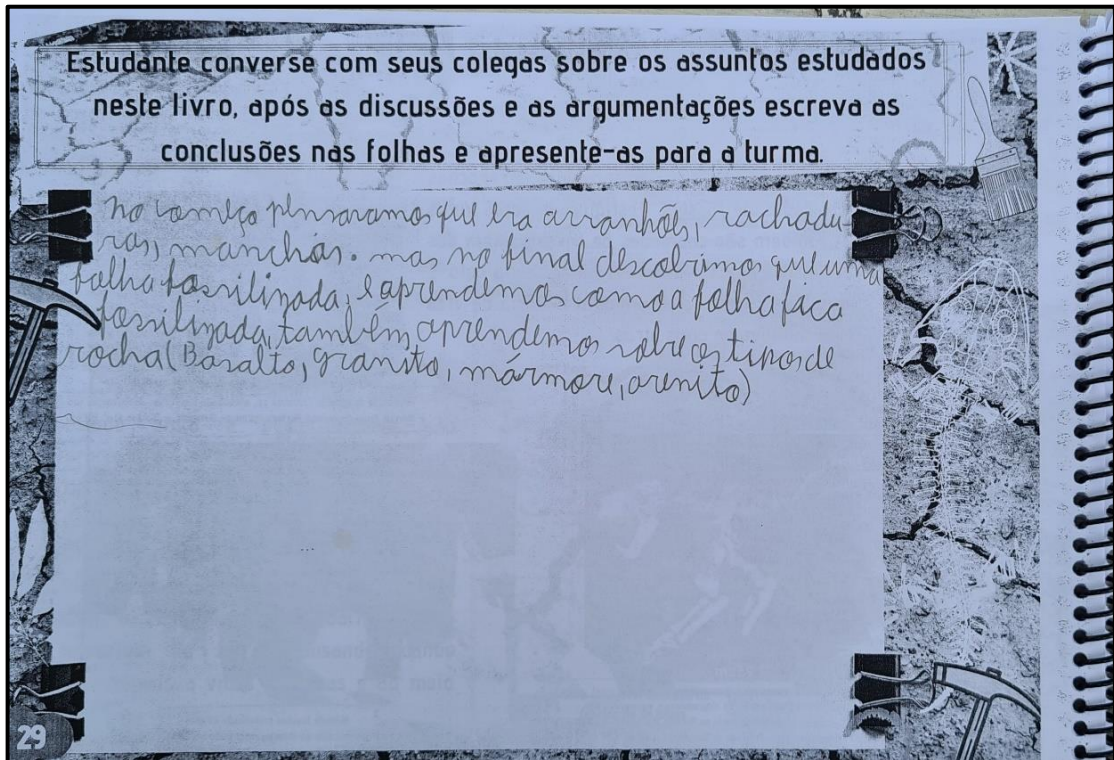 Estudante converse com seus colegas sobre os assuntos estudados
neste livro, após as discussões e as argumentações escreva as
conclusões nas folhas e apresente-as para a turma.
no começo pensavamos que era arranhões, rachadu-
ras, manchas. mas no final descobrimos que uma
folha fossilizada, e aprendemos como a folha fica
fossilizada, também aprendemos sobre os tipos de
rocha (Basalto, granito, mármore, arenito)
29